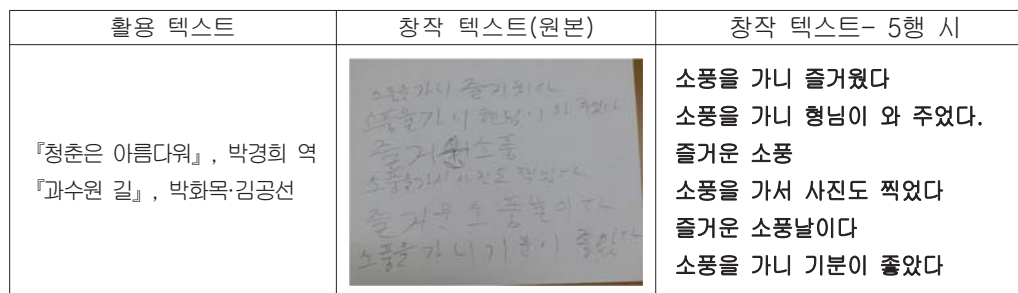 활용 텍스트
창작 텍스트(원본)
창작 텍스트- 5행 시
『청춘은 아름다워』, 박경희 역
『과수원 길』, 박화목·김공선
소풍을 가니 즐거웠다
소풍을 가니 형님이 와 주었다
즐거운 소풍
소풍을 가서 사진도 찍었다
즐거운 소풍날이다
소풍을 가니 기분이 좋았다
소풍을 가니 즐거웠다
소풍을 가니 형님이 와 주었다.
즐거운 소풍
소풍을 가서 사진도 찍었다
즐거운 소풍날이다
소풍을 가니 기분이 좋았다